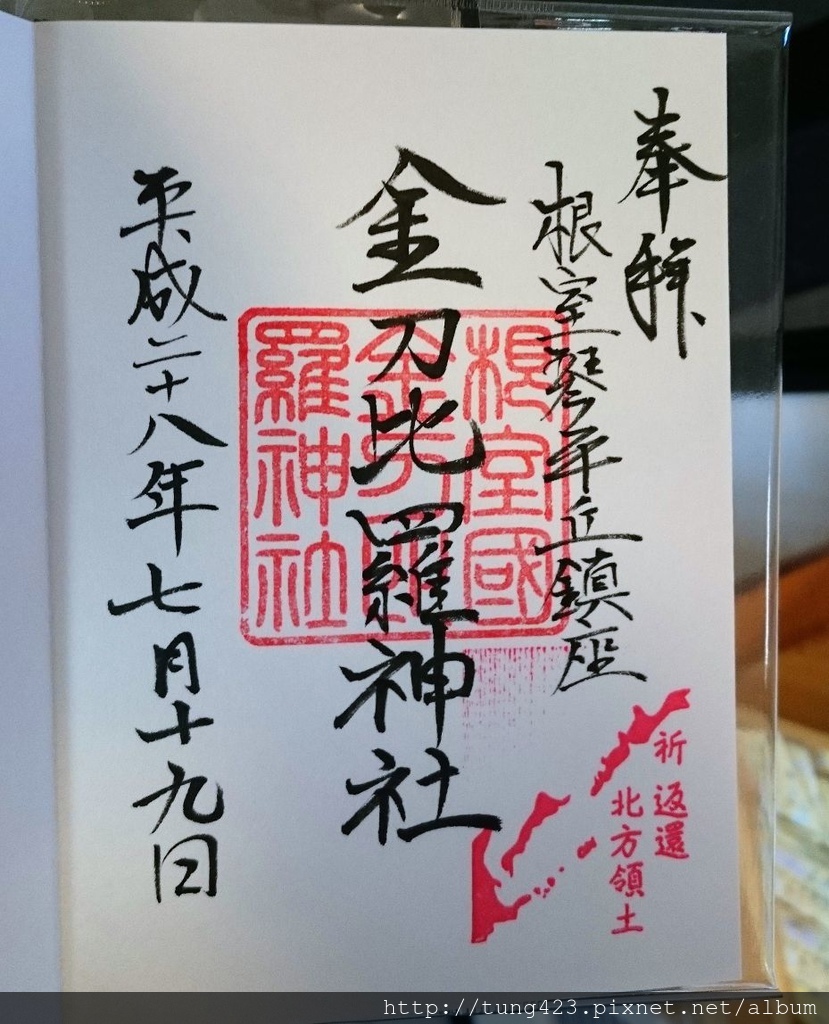 奉拜
根室琴平丘鎮座
金刀比羅神社
平成二十八年七月十九日
根室國
羅神社
祈 返還
北方領土
http://tung423.pixnet.net/album